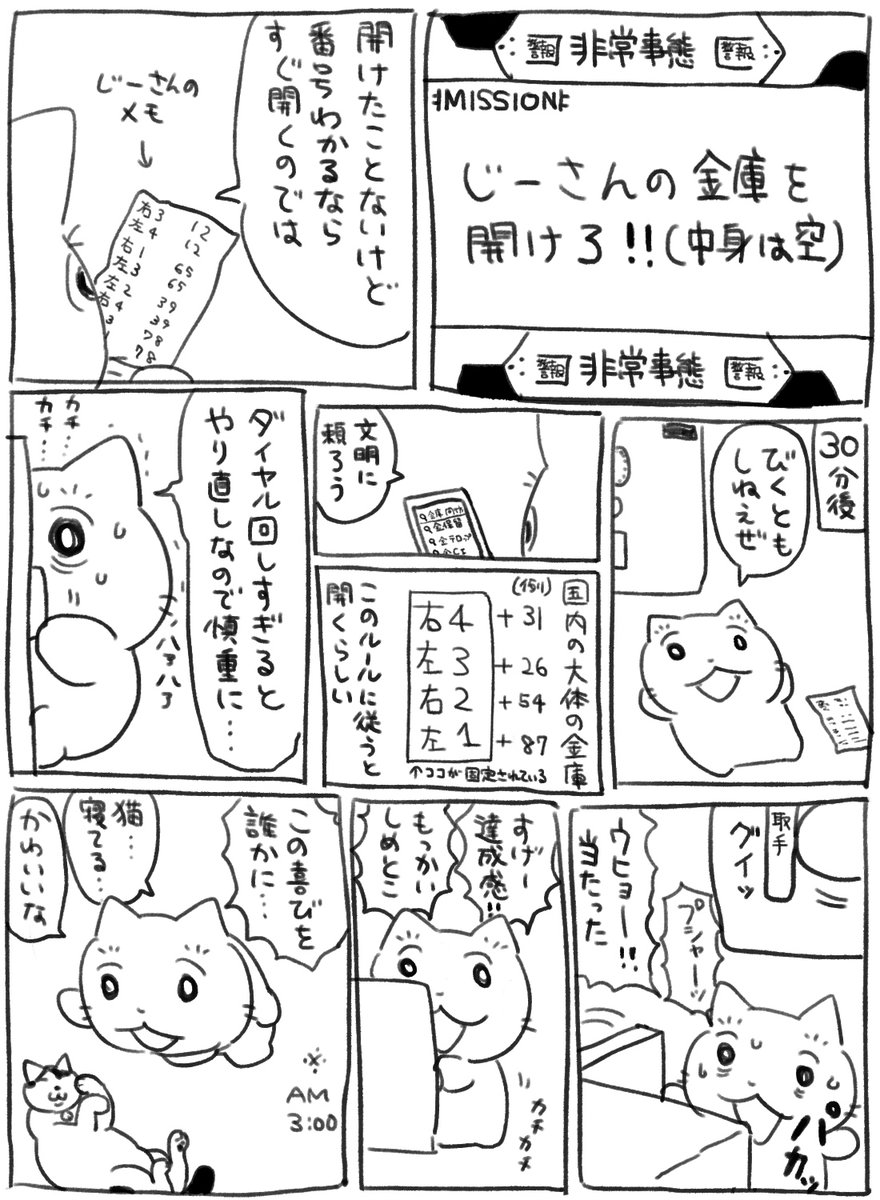 警報 非常事態 警報
MISSION
じーさんの金庫を
開けろ!!(中身は空)
警報 非常事態 警報
開けたことないけど
番号わかるなら
すぐ開くのでは
じーさんの
メモ
↓
右3 12
左4 12
右1 65
左3 65
左2 39
右4 39
3 78
78
30分後
びくとも
しねえぜ
文明に
頼ろう
国内の大体の金庫
(例)
右4+31
左3+26
右2+54
左1+87
↑ココが固定されている
このルールに従うと
開くらしい
ダイヤル回しすぎると
やり直しなので慎重に…
カチ…
カチ…
ハァハァ
取手
グイッ
プシャーッ
ウヒョー!!
当たった
パカッ
すげー
達成感!!
もっかい
しめとこ
カチ
カチ
この喜びを
誰かに…
猫…
寝てる…
かわいいな
AM
3:00